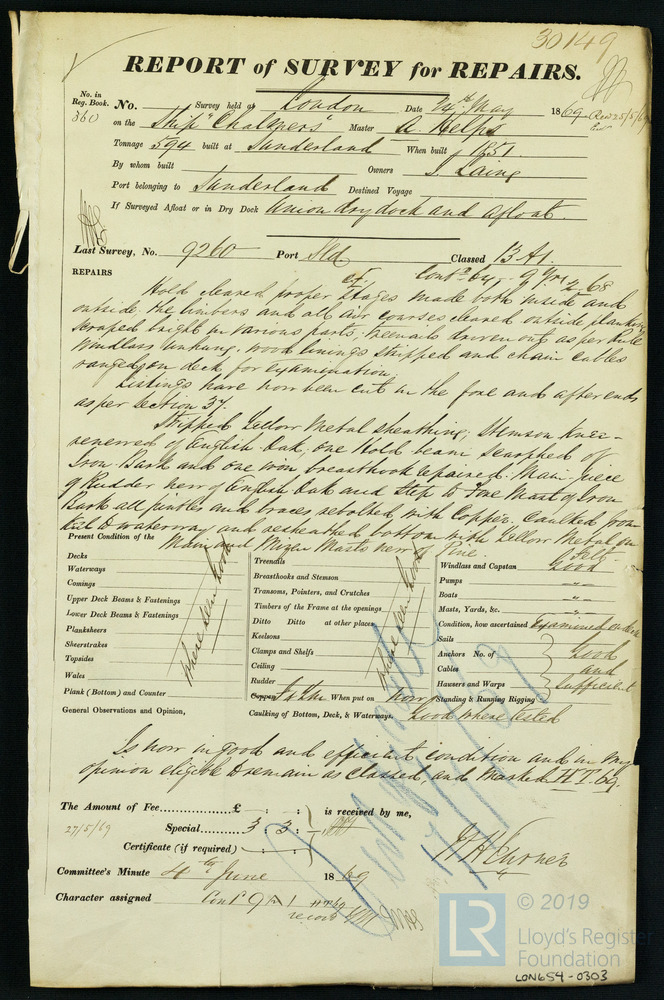 30149
REPORT of SURVEY for REPAIRS.
No. in
Reg. Book.
360
No. Survey held at London Date 24th May 1869 Recd 25/5/69
on the Ship "Challenger" Master A. Helps
Tonnage 594 built at Sunderland When built 1851
By whom built Owners J. Laing
Port belonging to Sunderland Destined Voyage
If Surveyed Afloat or in Dry Dock Union dry dock and afloat.
Last Survey, No. 9260 Port Sld Classed 13 A1.
Contd 9 Yrs 68
REPAIRS
Hold cleared proper Stages made both inside and
outside, the limbers and all air courses cleared outside planking
scraped bright in various parts, Treenails driven out as per Rule
Windlass unhung, wood linings stripped and chain cables
ranged on deck for examination.
Listings have now been cut in the fore and after ends
as per Section 37.
Stripped Yellow Metal sheathing, Stemson Knee
renewed of English Oak, one Hold beam Scarphed of
Iron Bark and one iron breasthook repaired, Main piece
of Rudder new of English Oak and Step to Fore Mast of Iron
Bark all pintles and braces rebolted with Copper. Caulked from
Keel to waterway and resheathed bottom with Yellow Metal on
Felt
Main and Mizen Masts new of Pine.
Present Condition of the
Decks
Waterways
Comings
Upper Deck Beams & Fastenings
Lower Deck Beams & Fastenings
Planksheers
Sheerstrakes
Topsides
Wales
Plank (Bottom) and Counter
where seen Good
Treenails
Breasthooks and Stemson
Transoms, Pointers, and Crutches
Timbers of the Frame at the openings
Ditto Ditto at other places
Keelsons
Clamps and Shelfs
Ceiling
Rudder
where seen Good
Copper When put on now
Caulking of Bottom, Deck, & Waterways Good where tested
Windlass and Capstan Good
Pumps "
Boats "
Masts, Yards, &c. "
Condition, how ascertained Examined on deck
Sails
Anchors No. of
Cables
Hawsers and Warps
Standing & Running Rigging
Good
and
Sufficient
General Observations and Opinion,
Is now in good and efficient condition and in my
opinion eligible to remain as Classed, and Marked H T. 69.
The Amount of Fee £ is received by me,
27/5/69
Special 3 : 3 :
Certificate (if required)
Committee's Minute 4th June 1869
Character assigned Contd 9 A1 HT 69
record YM
© 2019
LR
Lloyd's Register
Foundation
LON654-0303